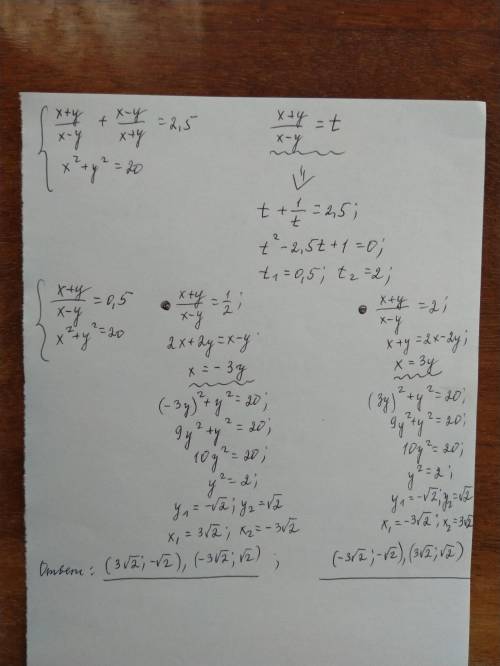 { (x+y)/(x-y) + (x-y)/(x+y) = 2,5
x² + y² = 20
(x+y)/(x-y) = t
⇓
t + 1/t = 2,5;
t² - 2,5t + 1 = 0;
t₁ = 0,5; t₂ = 2;
{ (x+y)/(x-y) = 0,5
x² + y² = 20
• (x+y)/(x-y) = 1/2;
2x + 2y = x - y
x = -3y
(-3y)² + y² = 20;
9y² + y² = 20;
10y² = 20;
y² = 2;
y₁ = -√2; y₂ = √2
x₁ = 3√2; x₂ = -3√2
• (x+y)/(x-y) = 2;
x + y = 2x - 2y;
x = 3y
(3y)² + y² = 20;
9y² + y² = 20;
10y² = 20;
y² = 2;
y₁ = -√2; y₂ = √2
x₁ = -3√2; x₂ = 3√2
Ответ: (3√2; -√2), (-3√2; √2) ; (-3√2; -√2), (3√2; √2)